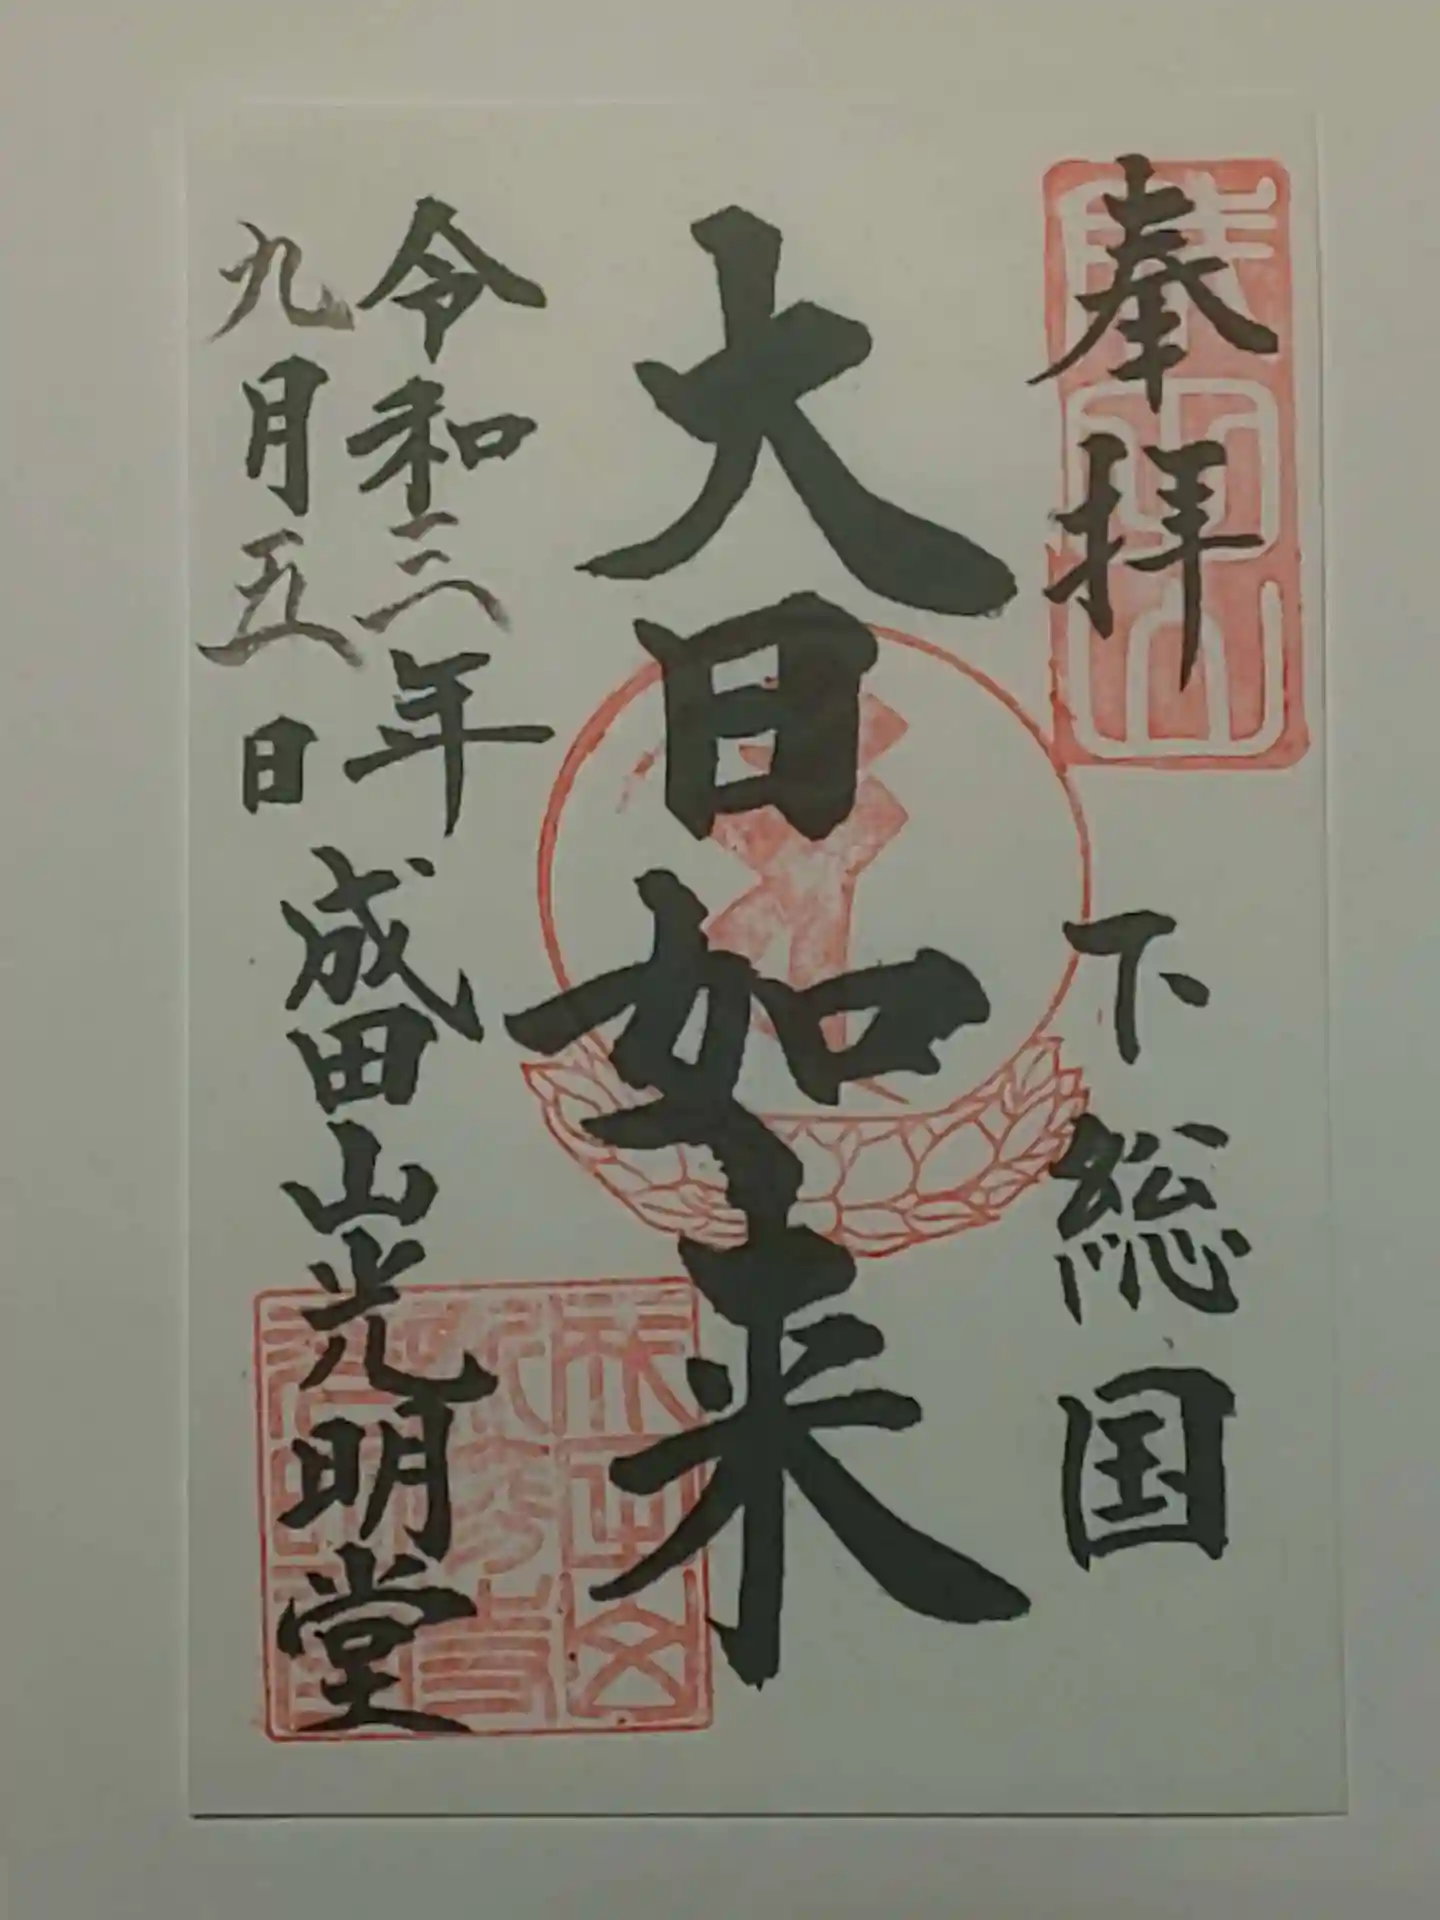 奉拝
下総国
大日如来
令和三年
九月五日
成田山光明堂
成田山